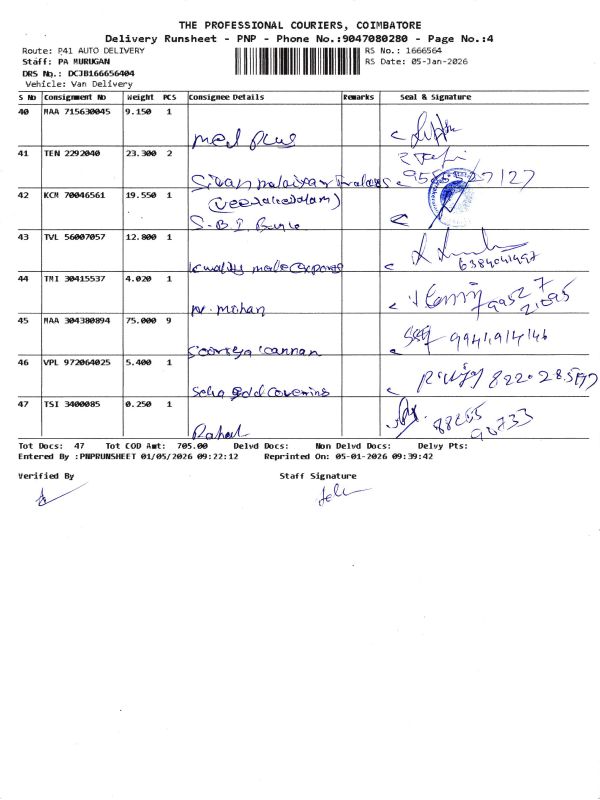 THE PROFESSIONAL COURIERS, COIMBATORE
Delivery Runsheet - PNP - Phone No.:9047080280 - Page No.:4
Route: P41 AUTO DELIVERY
RS No.: 1666564
Staff: PA MURUGAN
RS Date: 05-Jan-2026
DRS No.: DCJB166656404
Vehicle: Van Delivery
S No Consignment No Weight PCS Consignee Details Remarks Seal & Signature
40 MAA 715630045 9.150 1
med plus
41 TEN 2292040 23.300 2
27127
42 KCM 70046561 19.550 1
S.B.I. Bank
43 TVL 56007057 12.800 1
6384041497
44 TMI 30415537 4.020 1
mohan
45 MAA 304380894 75.000 9
9941914146
46 VPL 972064025 5.400 1
gold covering
47 TSI 3400085 0.250 1
88255
90733
Rahul
Tot Docs: 47 Tot COD Amt: 705.00 Delvd Docs: Non Delvd Docs: Delvy Pts:
Entered By :PNPRUNSHEET 01/05/2026 09:22:12 Reprinted On: 05-01-2026 09:39:42
Verified By Staff Signature